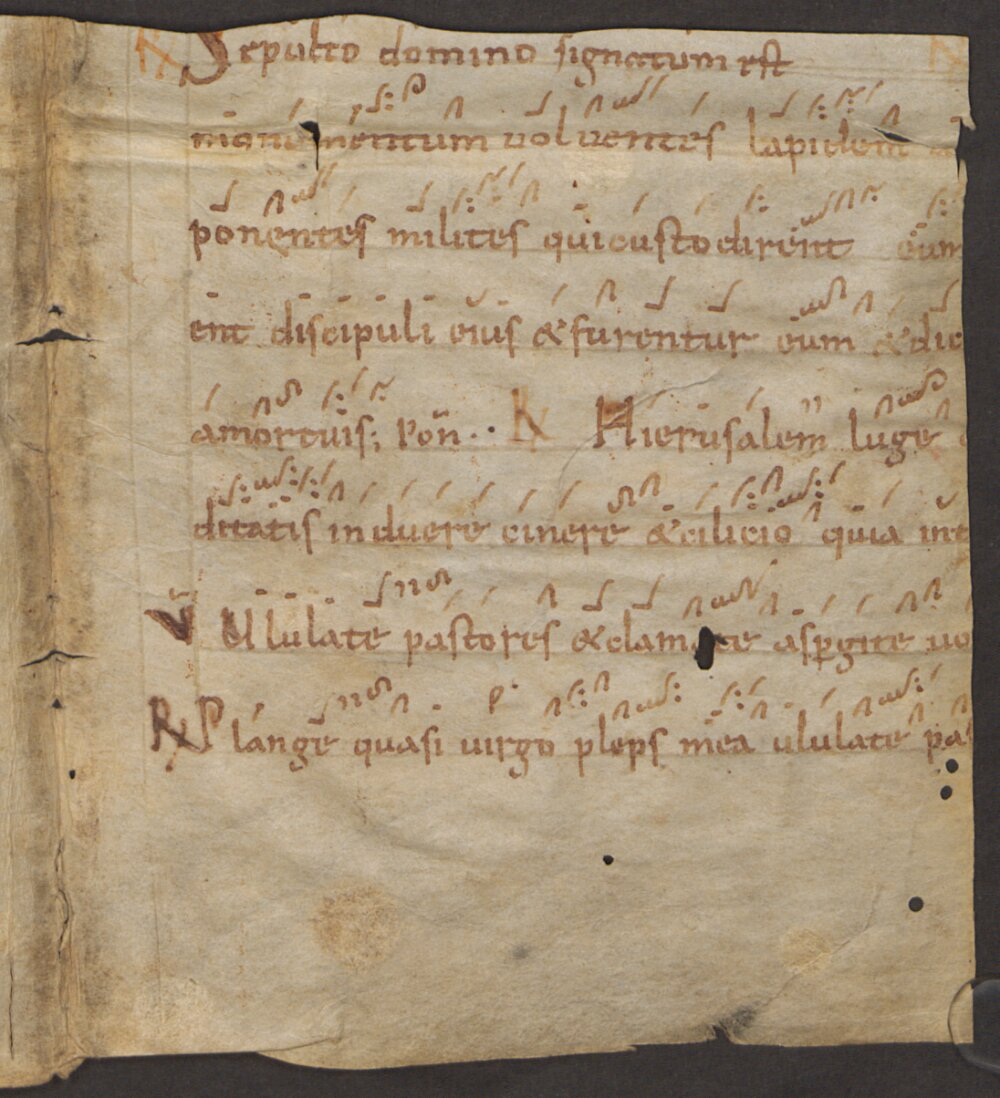 ℟ Sepulto domino signatum est
monumentum uoluentes lapidem
ponentes milites qui custodirent eum
ent discipuli eius & furentur eum & dic
amortuis; Pon̄ ℟ Hierusalem luge
ditatis induere cinere & cilicio quia int
V̄ Ululate pastores & clamate asp̱gite uo
℟ Plange quasi uirgo plebs mea ululate pas